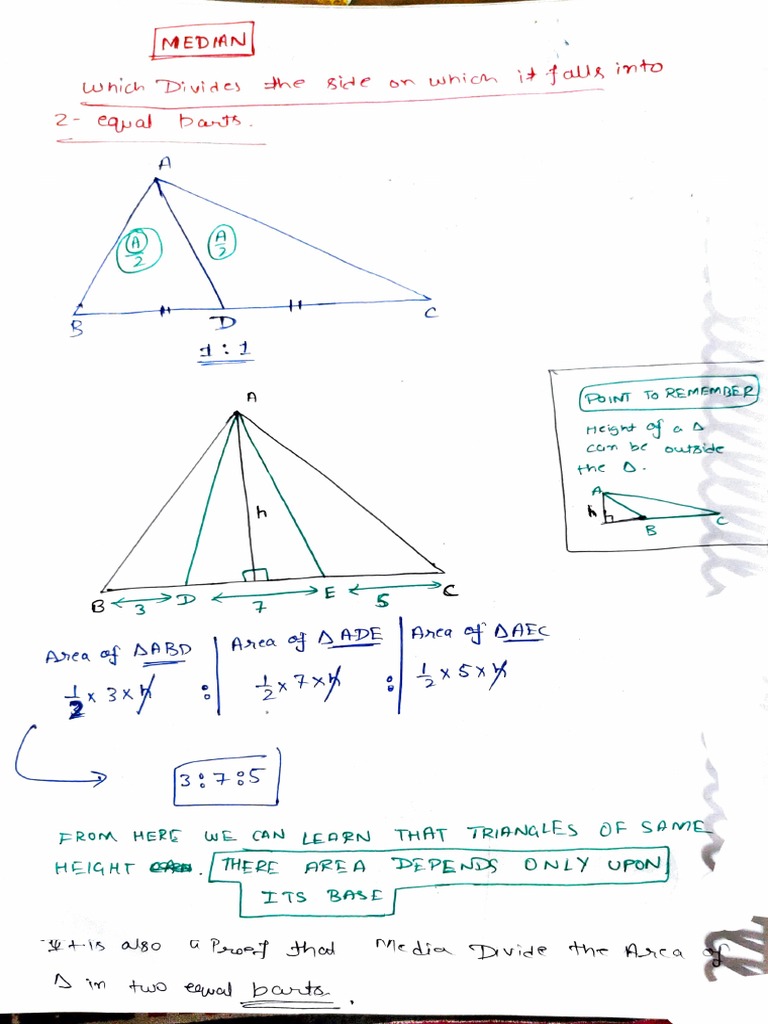 MEDIAN
Which Divides the side on which it falls into
2- equal parts.
A
A/2 A/2
B D C
1 : 1
A
h
B 3 D 7 E 5 C
POINT TO REMEMBER
Height of a Δ
can be outside
the Δ.
A
h
B C
Area of ΔABD : Area of ΔADE : Area of ΔAEC
1/2 × 3 × h : 1/2 × 7 × h : 1/2 × 5 × h
3:7:5
FROM HERE WE CAN LEARN THAT TRIANGLES OF SAME
HEIGHT . THERE AREA DEPENDS ONLY UPON
ITS BASE
It is also a Proof that Media Divide the Area of
Δ in two equal parts.